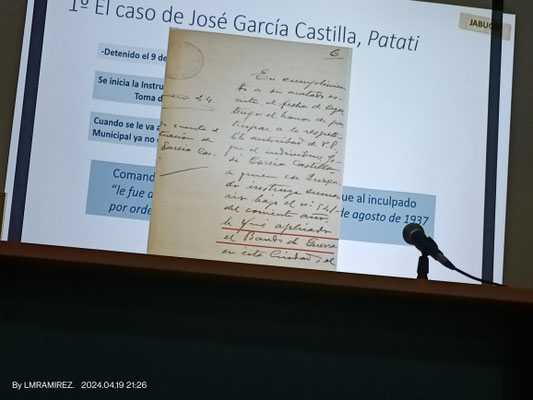 1º El caso de José García Castilla, Patati
JABUGO
-Detenido el 9 de
Se inicia la Instru
Toma d
Cuando se le va a
Municipal ya no
Comand
que al inculpado
"le fue a
de agosto de 1937
por orde
6
En cumplimien-
to a su
tengo el honor de par-
ticipar a la respeta-
ble autoridad de V.S.
que el individuo Jo-
sé García Castilla
a quien ese Juzga-
do instruye
bajo el nº 541
del corriente año
le fué aplicado
el Bando de Guerra
en esta Ciudad, el
García Cas-
By LMRAMIREZ. 2024.04.19 21:26